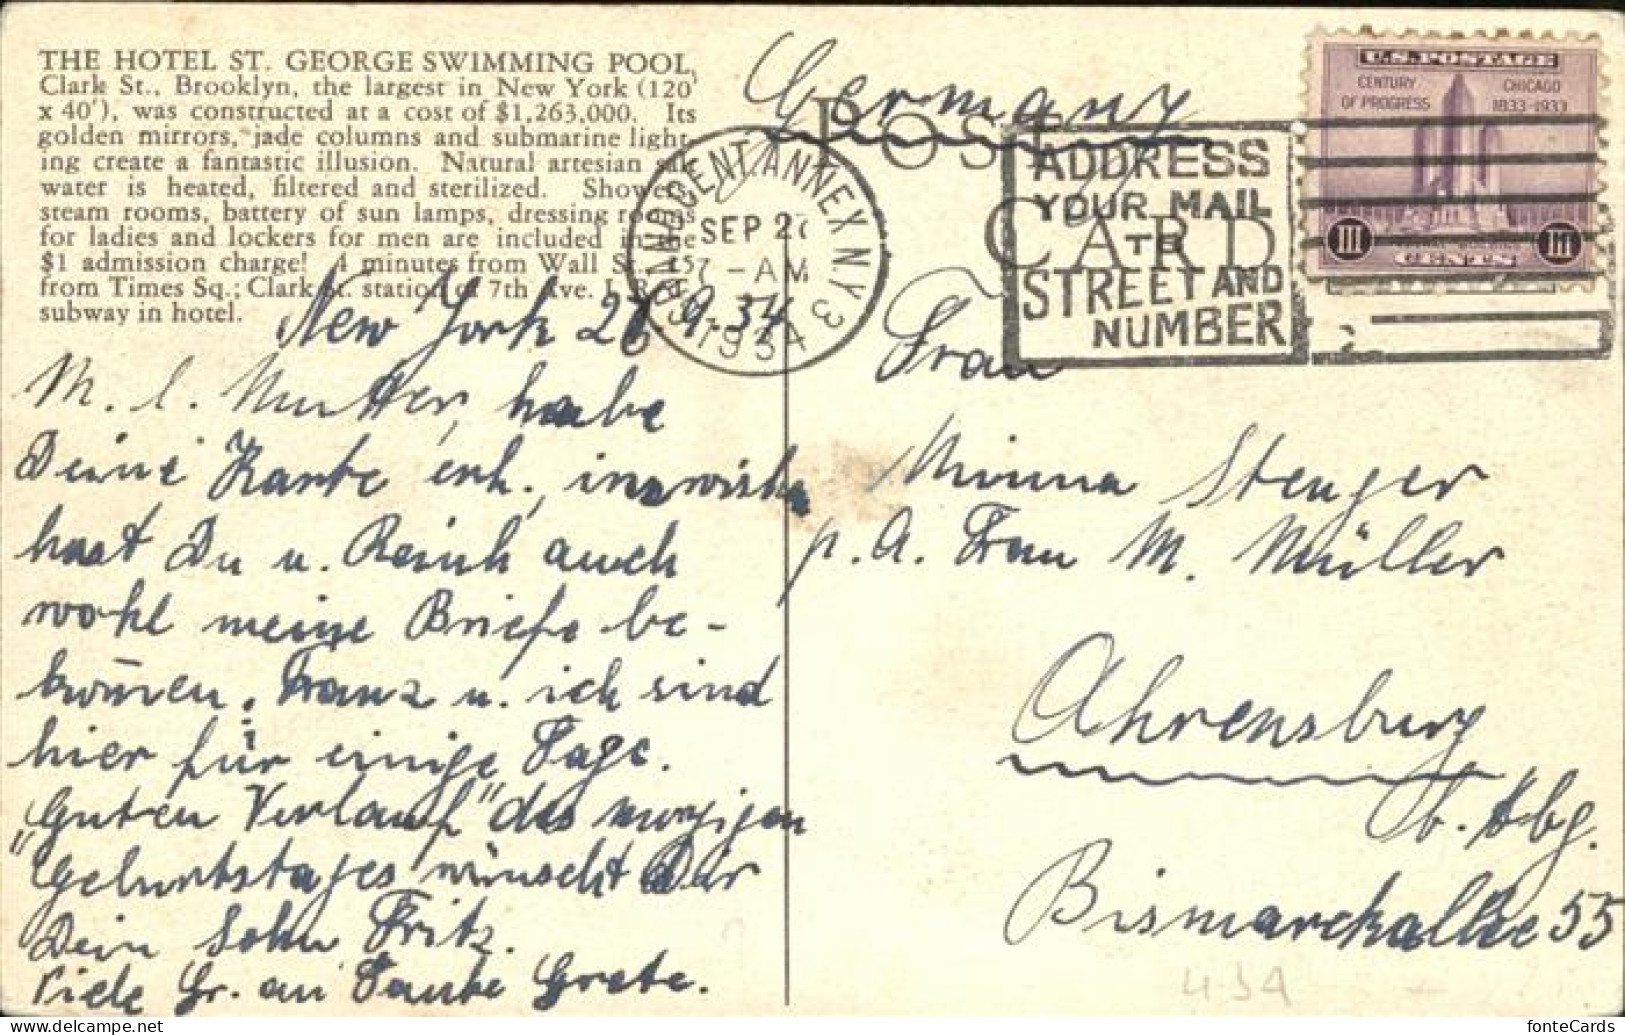 THE HOTEL ST. GEORGE SWIMMING POOL,
Clark St., Brooklyn, the largest in New York (120'
x 40'), was constructed at a cost of $1,263,000. Its
golden mirrors, jade columns and submarine light-
ing create a fantastic illusion. Natural artesian salt
water is heated, filtered and sterilized. Showers,
steam rooms, battery of sun lamps, dressing rooms
for ladies and lockers for men are included in the
$1 admission charge! 4 minutes from Wall St., 15
from Times Sq.; Clark St. station of 7th Ave. I. R. T.
subway in hotel.
New York 9. 34
M. l. Mutter, habe
Deine Karte erh., inzwischen
hast Du u. Reinh auch
wohl meine Briefe be-
kommen. Franz u. ich sind
hier für einige Tage.
"Guten Verlauf" des morgigen
Geburtstages wünscht Dir
Dein Sohn Fritz.
Viele Gr. an Tante Grete.
Germany
POST
CARD
GRAND CENT. ANNEX N.Y. 3
SEP 27
7 - AM
1934
ADDRESS
YOUR MAIL
TO
STREET AND
NUMBER
U.S. POSTAGE
CENTURY OF PROGRESS
CHICAGO 1833-1933
III III
CENTS
Frau
Minna Stenger
p. A. Frau M. Müller
Ahrensburg
b. Hbg.
Bismarckallee 55
434
www.delcampe.net
fonteCards